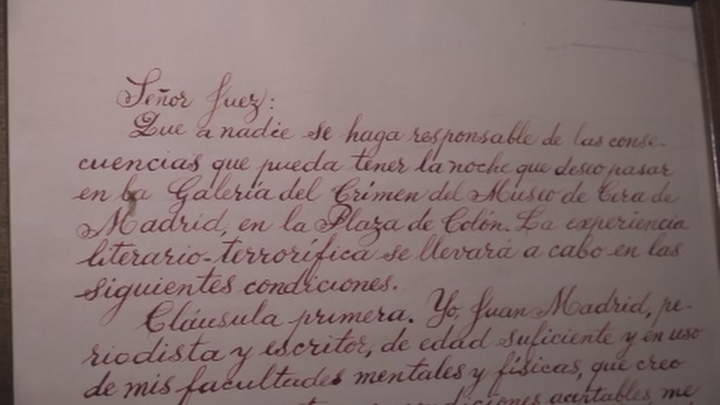 Señor Juez:
Que a nadie se haga responsable de las conse-
cuencias que pueda tener la noche que deseo pasar
en la Galería del Crimen del Museo de Cera de
Madrid, en la Plaza de Colón. La experiencia
literario-terrorífica se llevará a cabo en las
siguientes condiciones.
Cláusula primera. Yo, Juan Madrid, pe-
riodista y escritor, de edad suficiente y en uso
de mis facultades mentales y físicas, que creo
condiciones aceptables, me